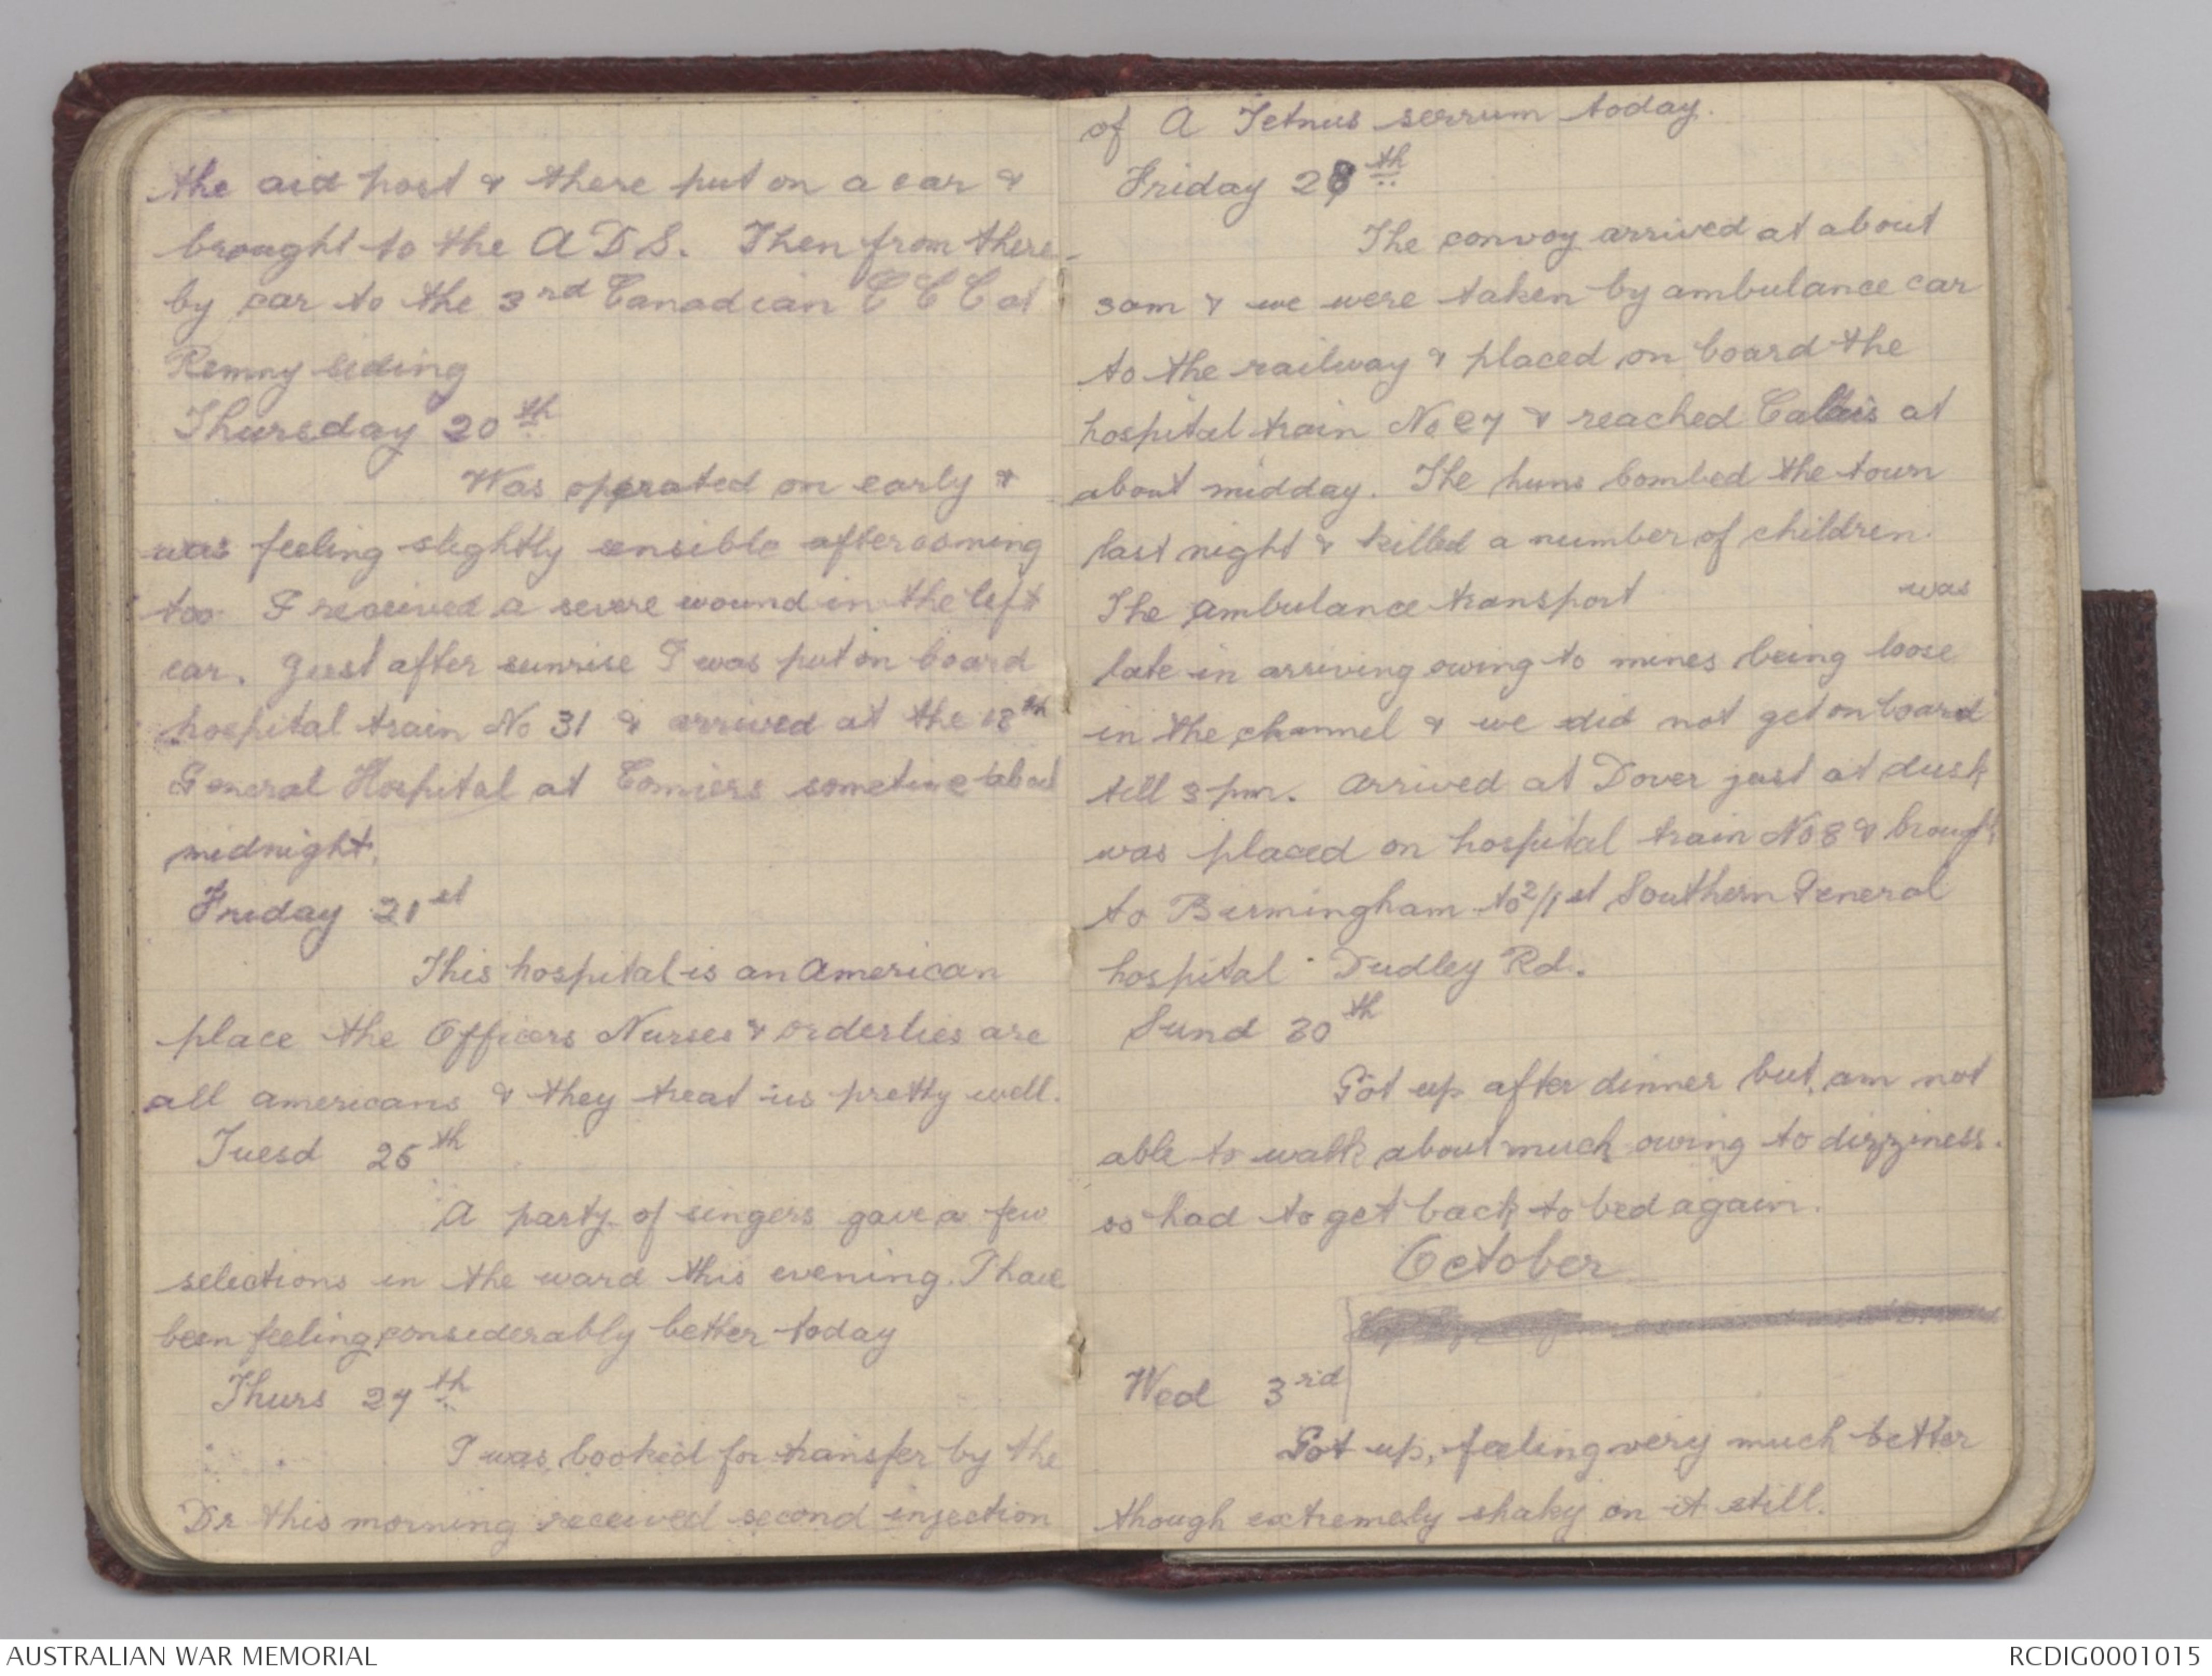 the aid post & there put on a car &
brought to the A D S. Then from there
by car to the 3rd Canadian C C C at
Remny siding
Thursday 20th
Was operated on early &
was feeling slightly sensible after coming
too. I received a severe wound in the left
ear. Just after sunrise I was put on board
hospital train No 31 & arrived at the 18th
General Hospital at Camiers sometime about
midnight.
Friday 21st
This hospital is an American
place the Officers Nurses & orderlies are
all americans & they treat us pretty well.
Tuesd 25th
A party of singers gave a few
selections in the ward this evening. I have
been feeling considerably better today
Thurs 27th
I was booked for transfer by the
Dr this morning received second injection
of A Tetnus serrum today.
Friday 28th
The convoy arrived at about
3am & we were taken by ambulance car
to the railway & placed on board the
hospital train No 27 & reached Calais at
about midday. The huns bombed the town
last night & killed a number of children.
The ambulance transport was
late in arriving owing to mines being loose
in the channel & we did not get on board
till 3 pm. Arrived at Dover just at dusk
was placed on hospital train No 8 & brought
to Birmingham to 2/1st Southern General
hospital Dudley Rd.
Sund 30th
Got up after dinner but am not
able to walk about much owing to dizziness.
so had to get back to bed again.
October
Wed 3rd
Got up, feeling very much better
though extremely shaky on it still.
AUSTRALIAN WAR MEMORIAL
RCDIG0001015